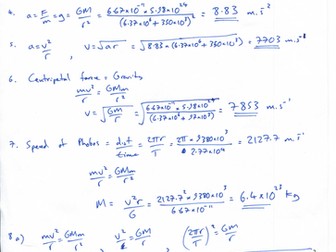 4. a = F/m = g = GM/r² = 6.67×10⁻¹¹ × 5.98×10²⁴ / (6.37×10⁶ + 350×10³)² = 8.83 m.s⁻²
5. a = v²/r , v = √ar = √8.83 × (6.37×10⁶ + 350×10³) = 7703 m.s⁻¹
6. Centripetal force = Gravity
mv²/r = GMm/r²
v = √GM/r = √6.67×10⁻¹¹ × 5.98×10²⁴ / = 7853 m.s⁻¹
7. Speed of Phobos = dist/time = 2πr/T = 2π × 9380×10³ / 2.77×10⁴ = 2127.7 m.s⁻¹
mv²/r = GMm/r²
M = v²r/G = 2127.7² × 9380×10³ / 6.67×10⁻¹¹ = 6.4×10²³ kg
8 a) mv²/r = GMm/r² v² = GM/r (2πr/T)² = GM/r